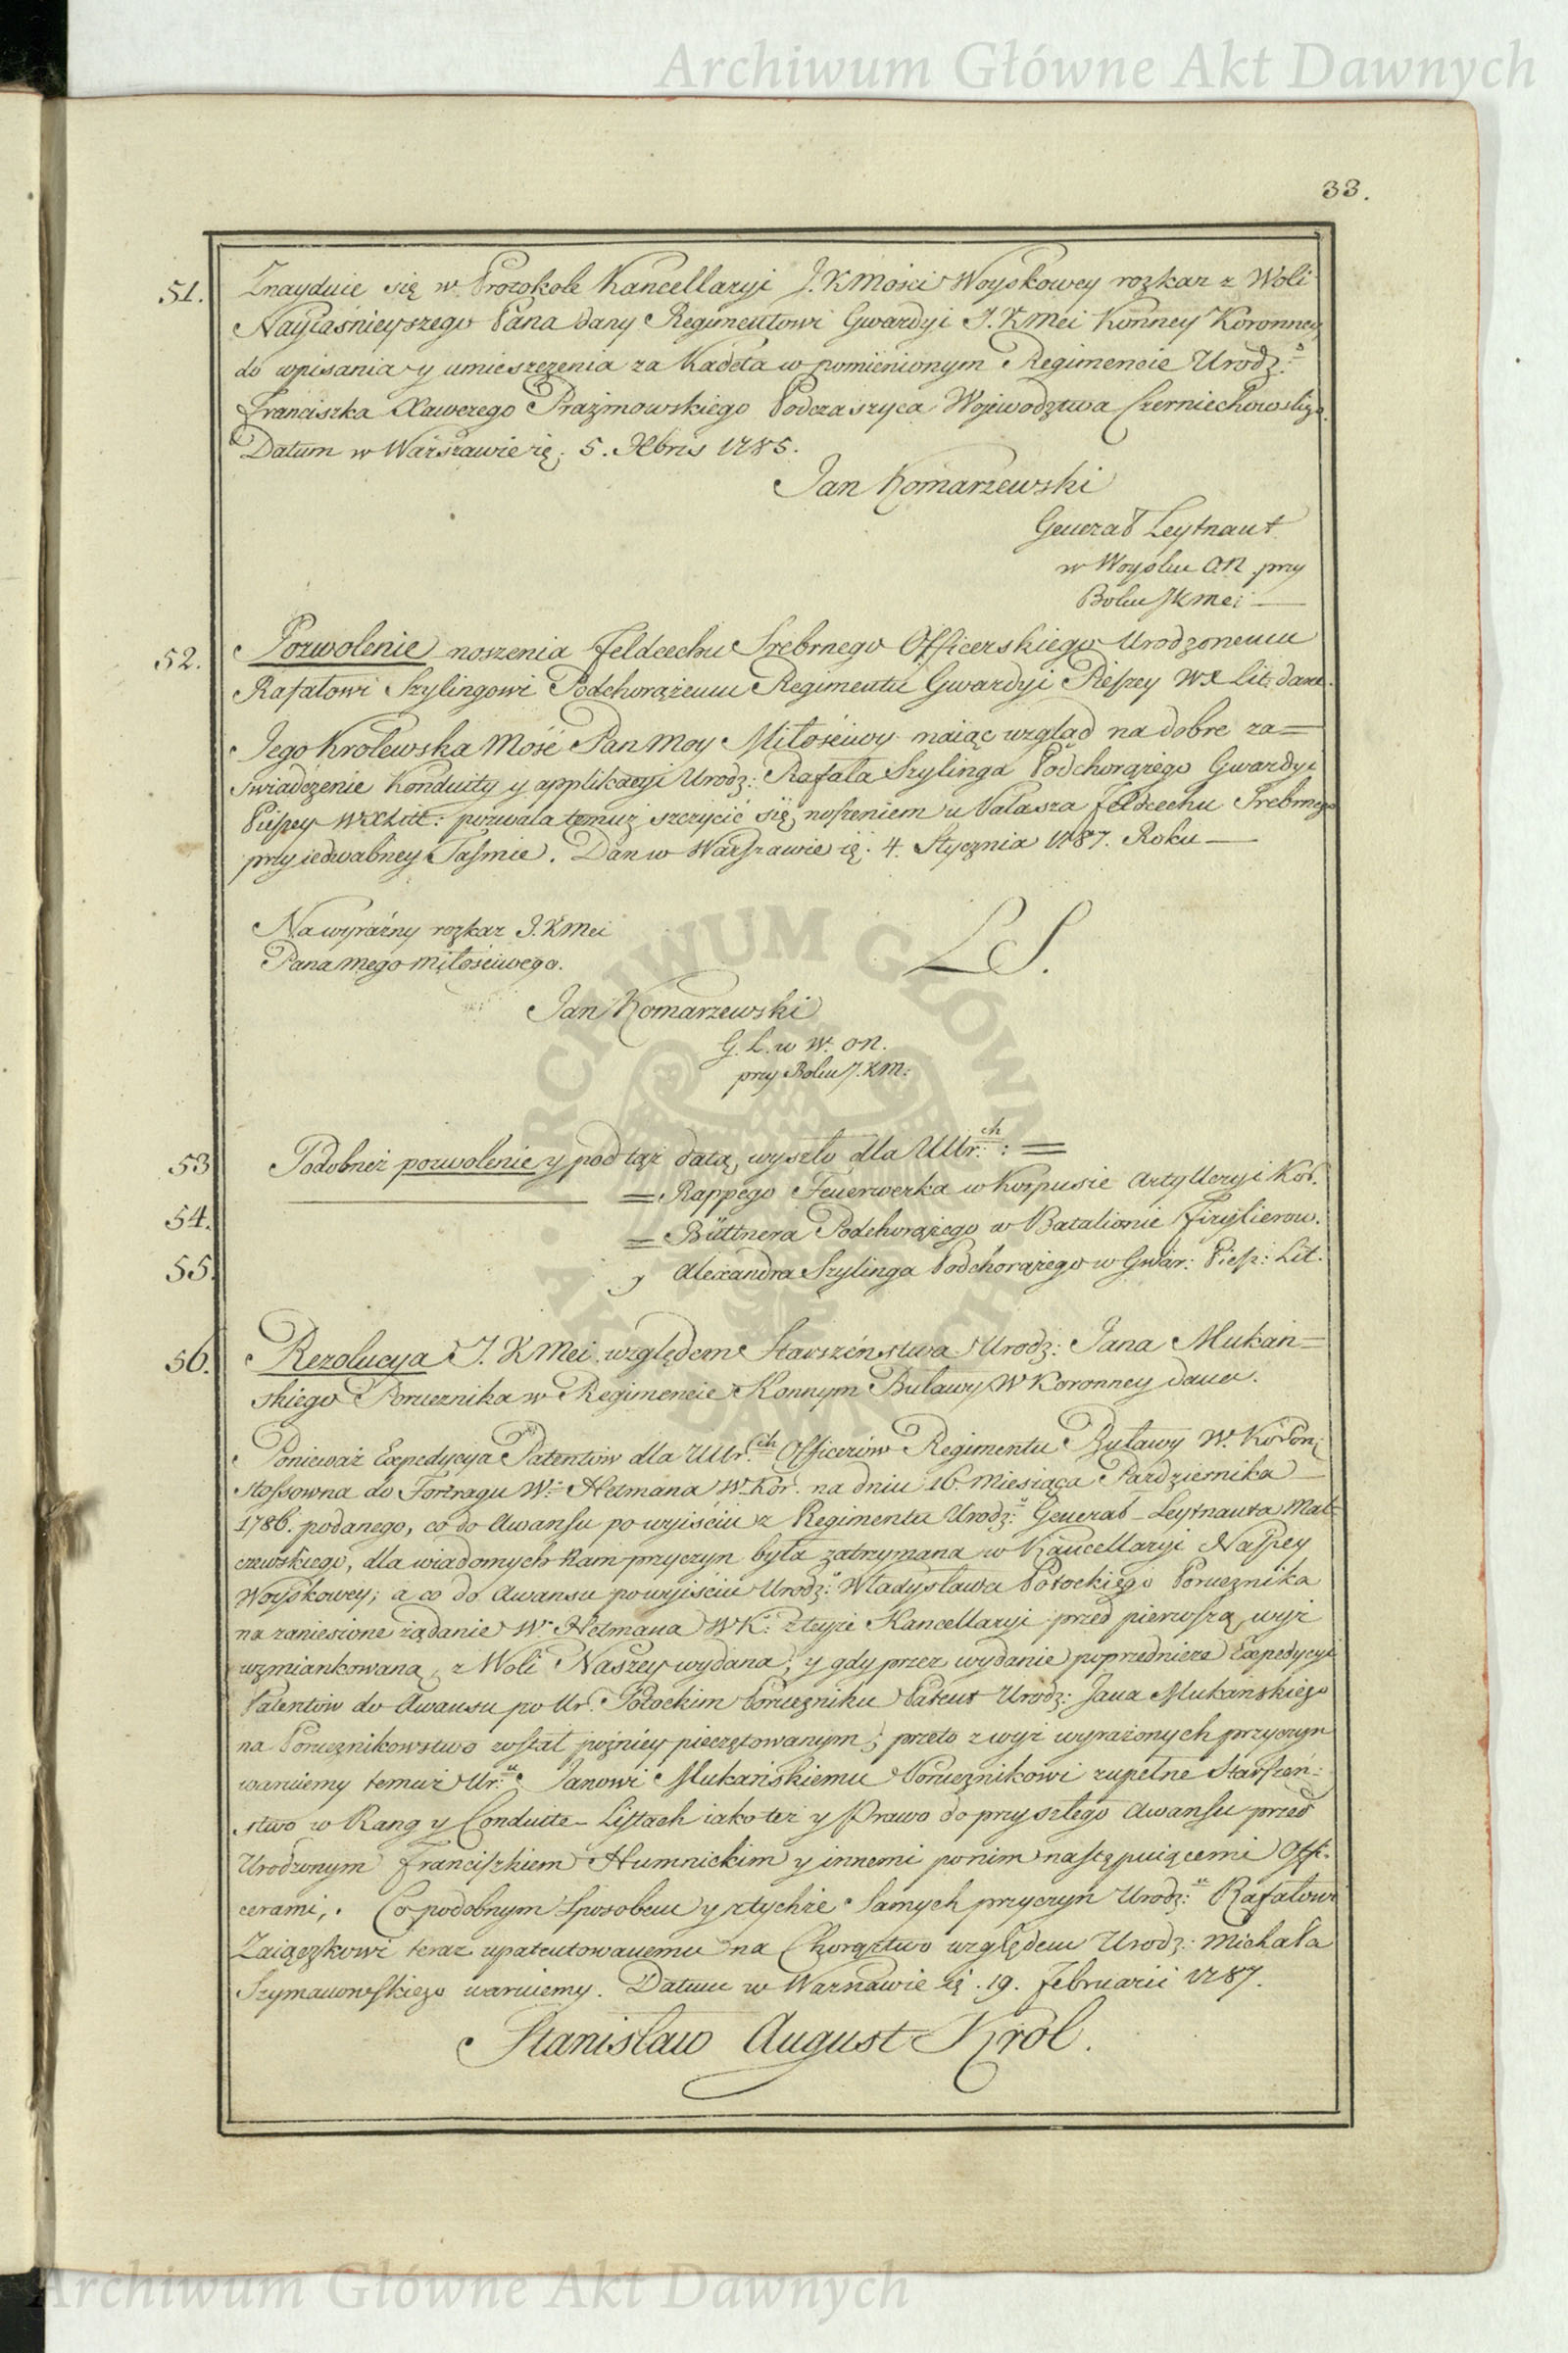 Archiwum Główne Akt Dawnych
33.
51. Znayduie się w Protokole Kancellaryi J. K Mości Woyskowey rozkaz z Woli
Nayiaśnieyszego Pana dany Regimentowi Gwardyi J. K Mci Konney Koronney
do wpisania y umieszczenia za Kadeta w pomienionym Regimencie Urodz:
Franciszka Xawerego Prażmowskiego Podczaszyca Województwa Czerniechowskigo.
Datum w Warszawie ię. 5. Xbris 1785.
Jan Komarzewski
Generał Leytnant
w Woysku On przy
Boku JKmci —
52. Pozwolenie noszenia Feldcechu Srebrnego Officerskiego Urodzonemu
Rafałowi Szylingowi Podchorążemu Regimentu Gwardyi Pieszey WX Lit: dane.
Jego Krolewska Mość Pan Moy Miłościwy maiąc wzgląd na dobre za=
świadczenie Konduity y applikacyi Urodz: Rafała Szylinga Podchorążego Gwardyi
Pieszey WXLitt: pozwala temuż szczycić się noszeniem u Pałasza Feldcechu Srebrnego
przy iedwabney Taśmie. Dan w Warszawie ię. 4. Stycznia 1787. Roku —
Na wyraźny rozkaz J. K Mci
Pana mego miłościwego.
L S.
Jan Komarzewski
G. L. w W. On.
przy Boku J. K M:
53 Podobneż pozwolenie y pod tąż datą wyszło dla UUr:ch : =
= Rappego Feuerwerka w Korpusie Artylleryi Kor.
54. = Büttnera Podchorążego w Batalionie Fizylierow.
55. y Alexandra Szylinga Podchorążego w Gwar: Piesz: Lit.
56. Rezolucya J. K Mci względem Starszeństwa Urodz: Jana Mukań=
skiego Porucznika w Regimencie Konnym Buławy W Koronney dana.
Ponieważ Expedycya Patentów dla UUr:ch Officerów Regimentu Buławy W. Koron:
stossowna do Fortragu W: Hetmana W. Kor. na dniu 16. Miesiąca Pazdziernika
1786. podanego, co do Awansu po wyiściu z Regimentu Urodz: Generał-Leytnanta Mal=
czewskiego, dla wiadomych Nam przyczyn była zatrzymana w Kancellaryi Naszey
Woyskowey; a co do Awansu po wyiściu Urodz: Władysława Potockiego Porucznika
na zaniesione żądanie W: Hetmana WK: z teyże Kancellaryi przed pierwszą wyż
wzmiankowaną z Woli Naszey wydana; y gdy przez wydanie poprzednicze Expedycyi
Patentów do Awansu po Ur. Potockim Poruczniku Patent Urodz: Jana Mukańskiego
na Porucznikowstwo został pożniey pieczętowanym; przeto z wyż wyrażonych przyczyn
waruiemy temuż Ur: Janowi Mukańskiemu Porucznikowi zupełne Starszeń:
stwo w Rang y Conduite-Listach iako też y Prawo do przyszłego Awansu przed
Urodzonym Franciszkiem Humnickim y innemi po nim następuiącemi Offi-
cerami,. Co podobnym Sposobem y z tychże Samych przyczyn Urodz: Rafałowi
Zaiączkowi teraz upatentowanemu na Chorąztwo względem Urodz: Michała
Szymanowskiego waruiemy. Datum w Warszawie ię. 19. Februarii 1787.
Stanisław August Król.
Archiwum Główne Akt Dawnych